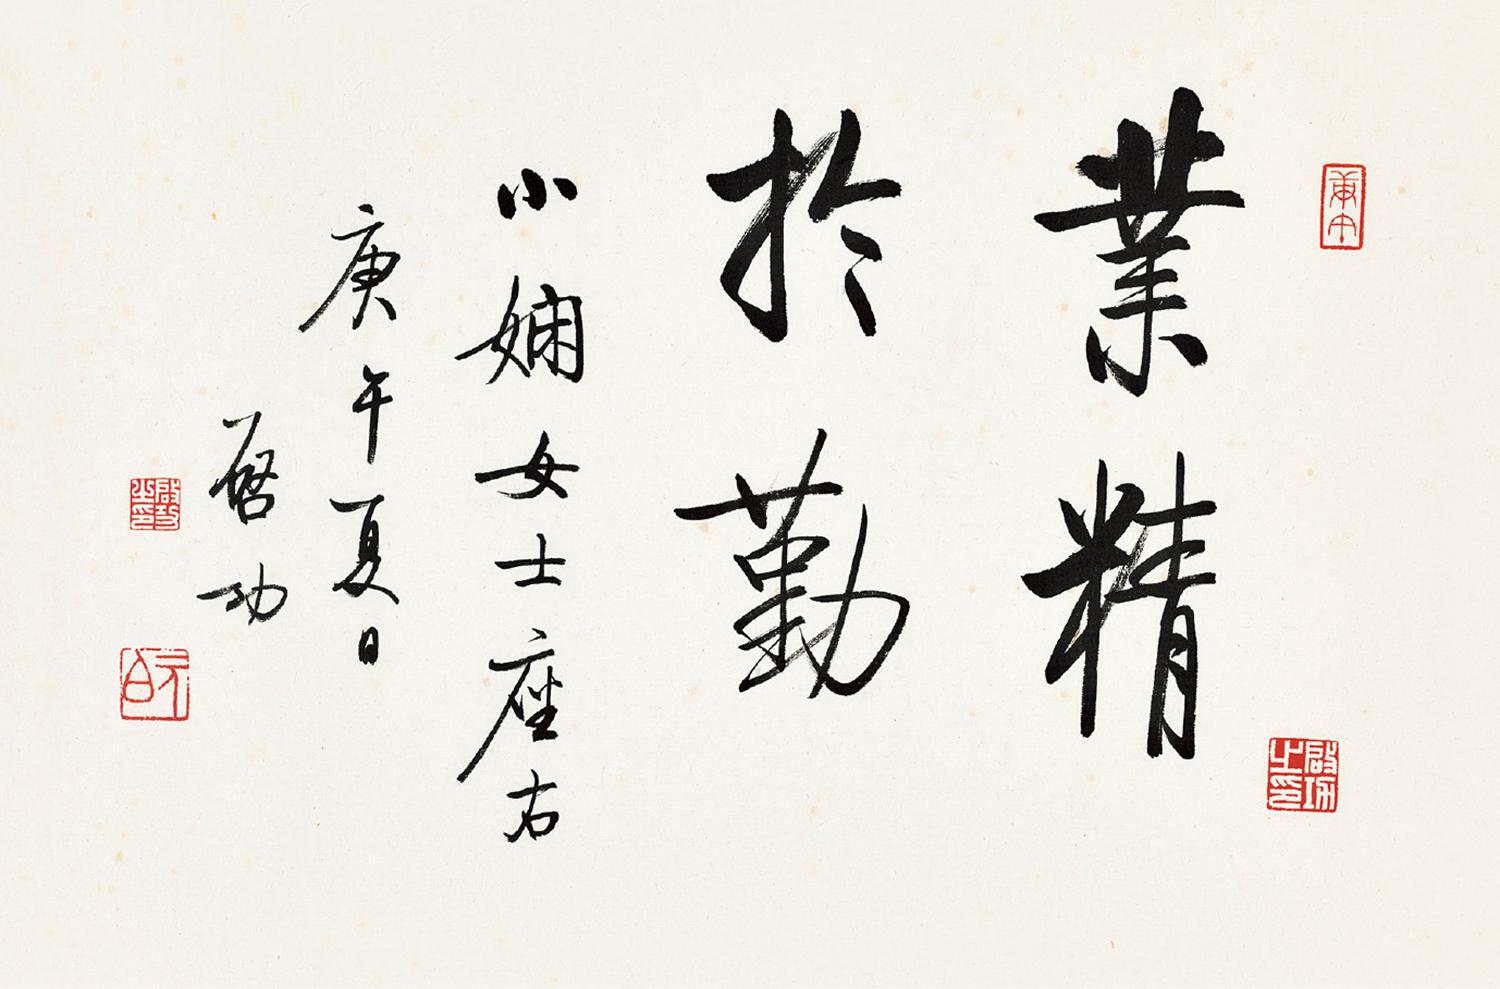 業精
於勤
小嫻女士座右
庚午夏日
启功
启功之印
元白
啟功之印